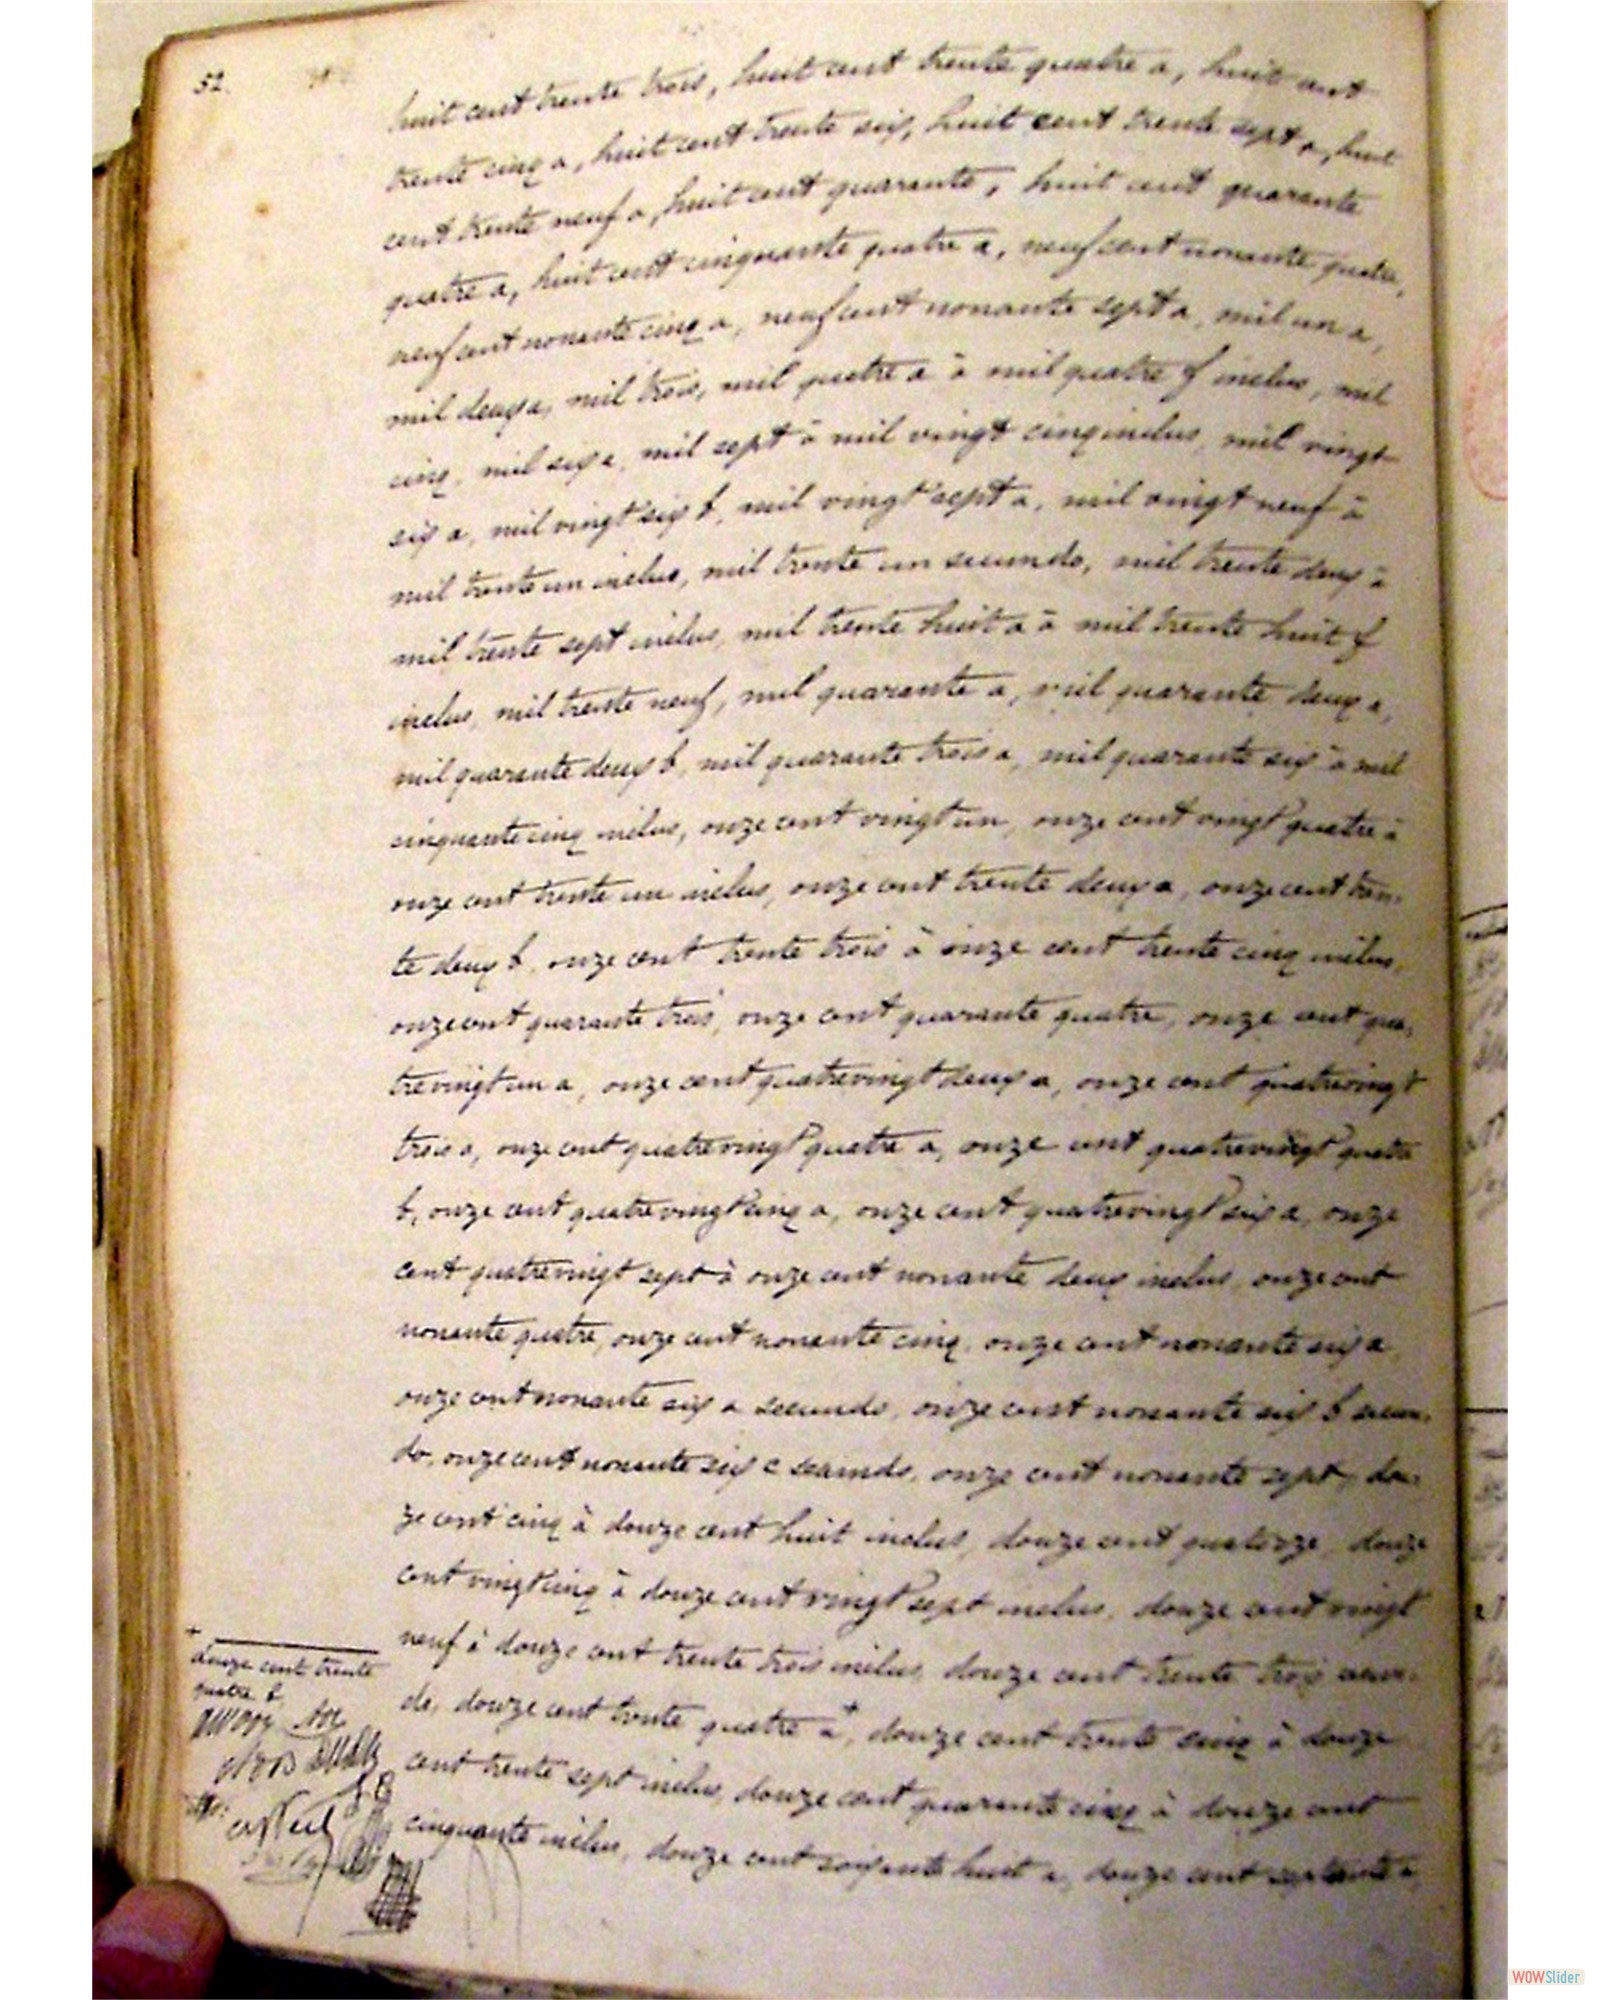 52.
huit cent trente trois, huit cent trente quatre a, huit cent
trente cinq a, huit cent trente six, huit cent trente sept a, huit
cent trente neuf a, huit cent quarante, huit cent quarante
quatre a, huit cent cinquante quatre a, neuf cent nonante quatre,
neuf cent nonante cinq a, neuf cent nonante sept a, mil un a,
mil deux a, mil trois, mil quatre a à mil quatre f inclus, mil
cinq, mil six a, mil sept à mil vingt cinq inclus, mil vingt
six a, mil vingt six b, mil vingt sept a, mil vingt neuf à
mil trente un inclus, mil trente un secundo, mil trente deux à
mil trente sept inclus, mil trente huit a à mil trente huit f
inclus, mil trente neuf, mil quarante a, mil quarante deux a,
mil quarante deux b, mil quarante trois a, mil quarante six à mil
cinquante cinq inclus, onze cent vingt un, onze cent vingt quatre à
onze cent trente un inclus, onze cent trente deux a, onze cent tren-
te deux b, onze cent trente trois à onze cent trente cinq inclus,
onze cent quarante trois, onze cent quarante quatre, onze cent qua-
tre vingt un a, onze cent quatre vingt deux a, onze cent quatre vingt
trois a, onze cent quatre vingt quatre a, onze cent quatre vingt quatre
b, onze cent quatre vingt cinq a, onze cent quatre vingt six a, onze
cent quatre vingt sept à onze cent nonante deux inclus, onze cent
nonante quatre, onze cent nonante cinq, onze cent nonante six a
onze cent nonante six a secundo, onze cent nonante six b secun-
do, onze cent nonante six c secundo, onze cent nonante sept, dou-
ze cent cinq à douze cent huit inclus, douze cent quatorze, douze
cent vingt cinq à douze cent vingt sept inclus, douze cent vingt
neuf à douze cent trente trois inclus, douze cent trente trois secun-
do, douze cent trente quatre a +, douze cent trente cinq à douze
cent trente sept inclus, douze cent quarante cinq à douze cent
cinquante inclus, douze cent soixante huit a, douze cent septante a
+
douze cent trente
quatre b
WOWSlider